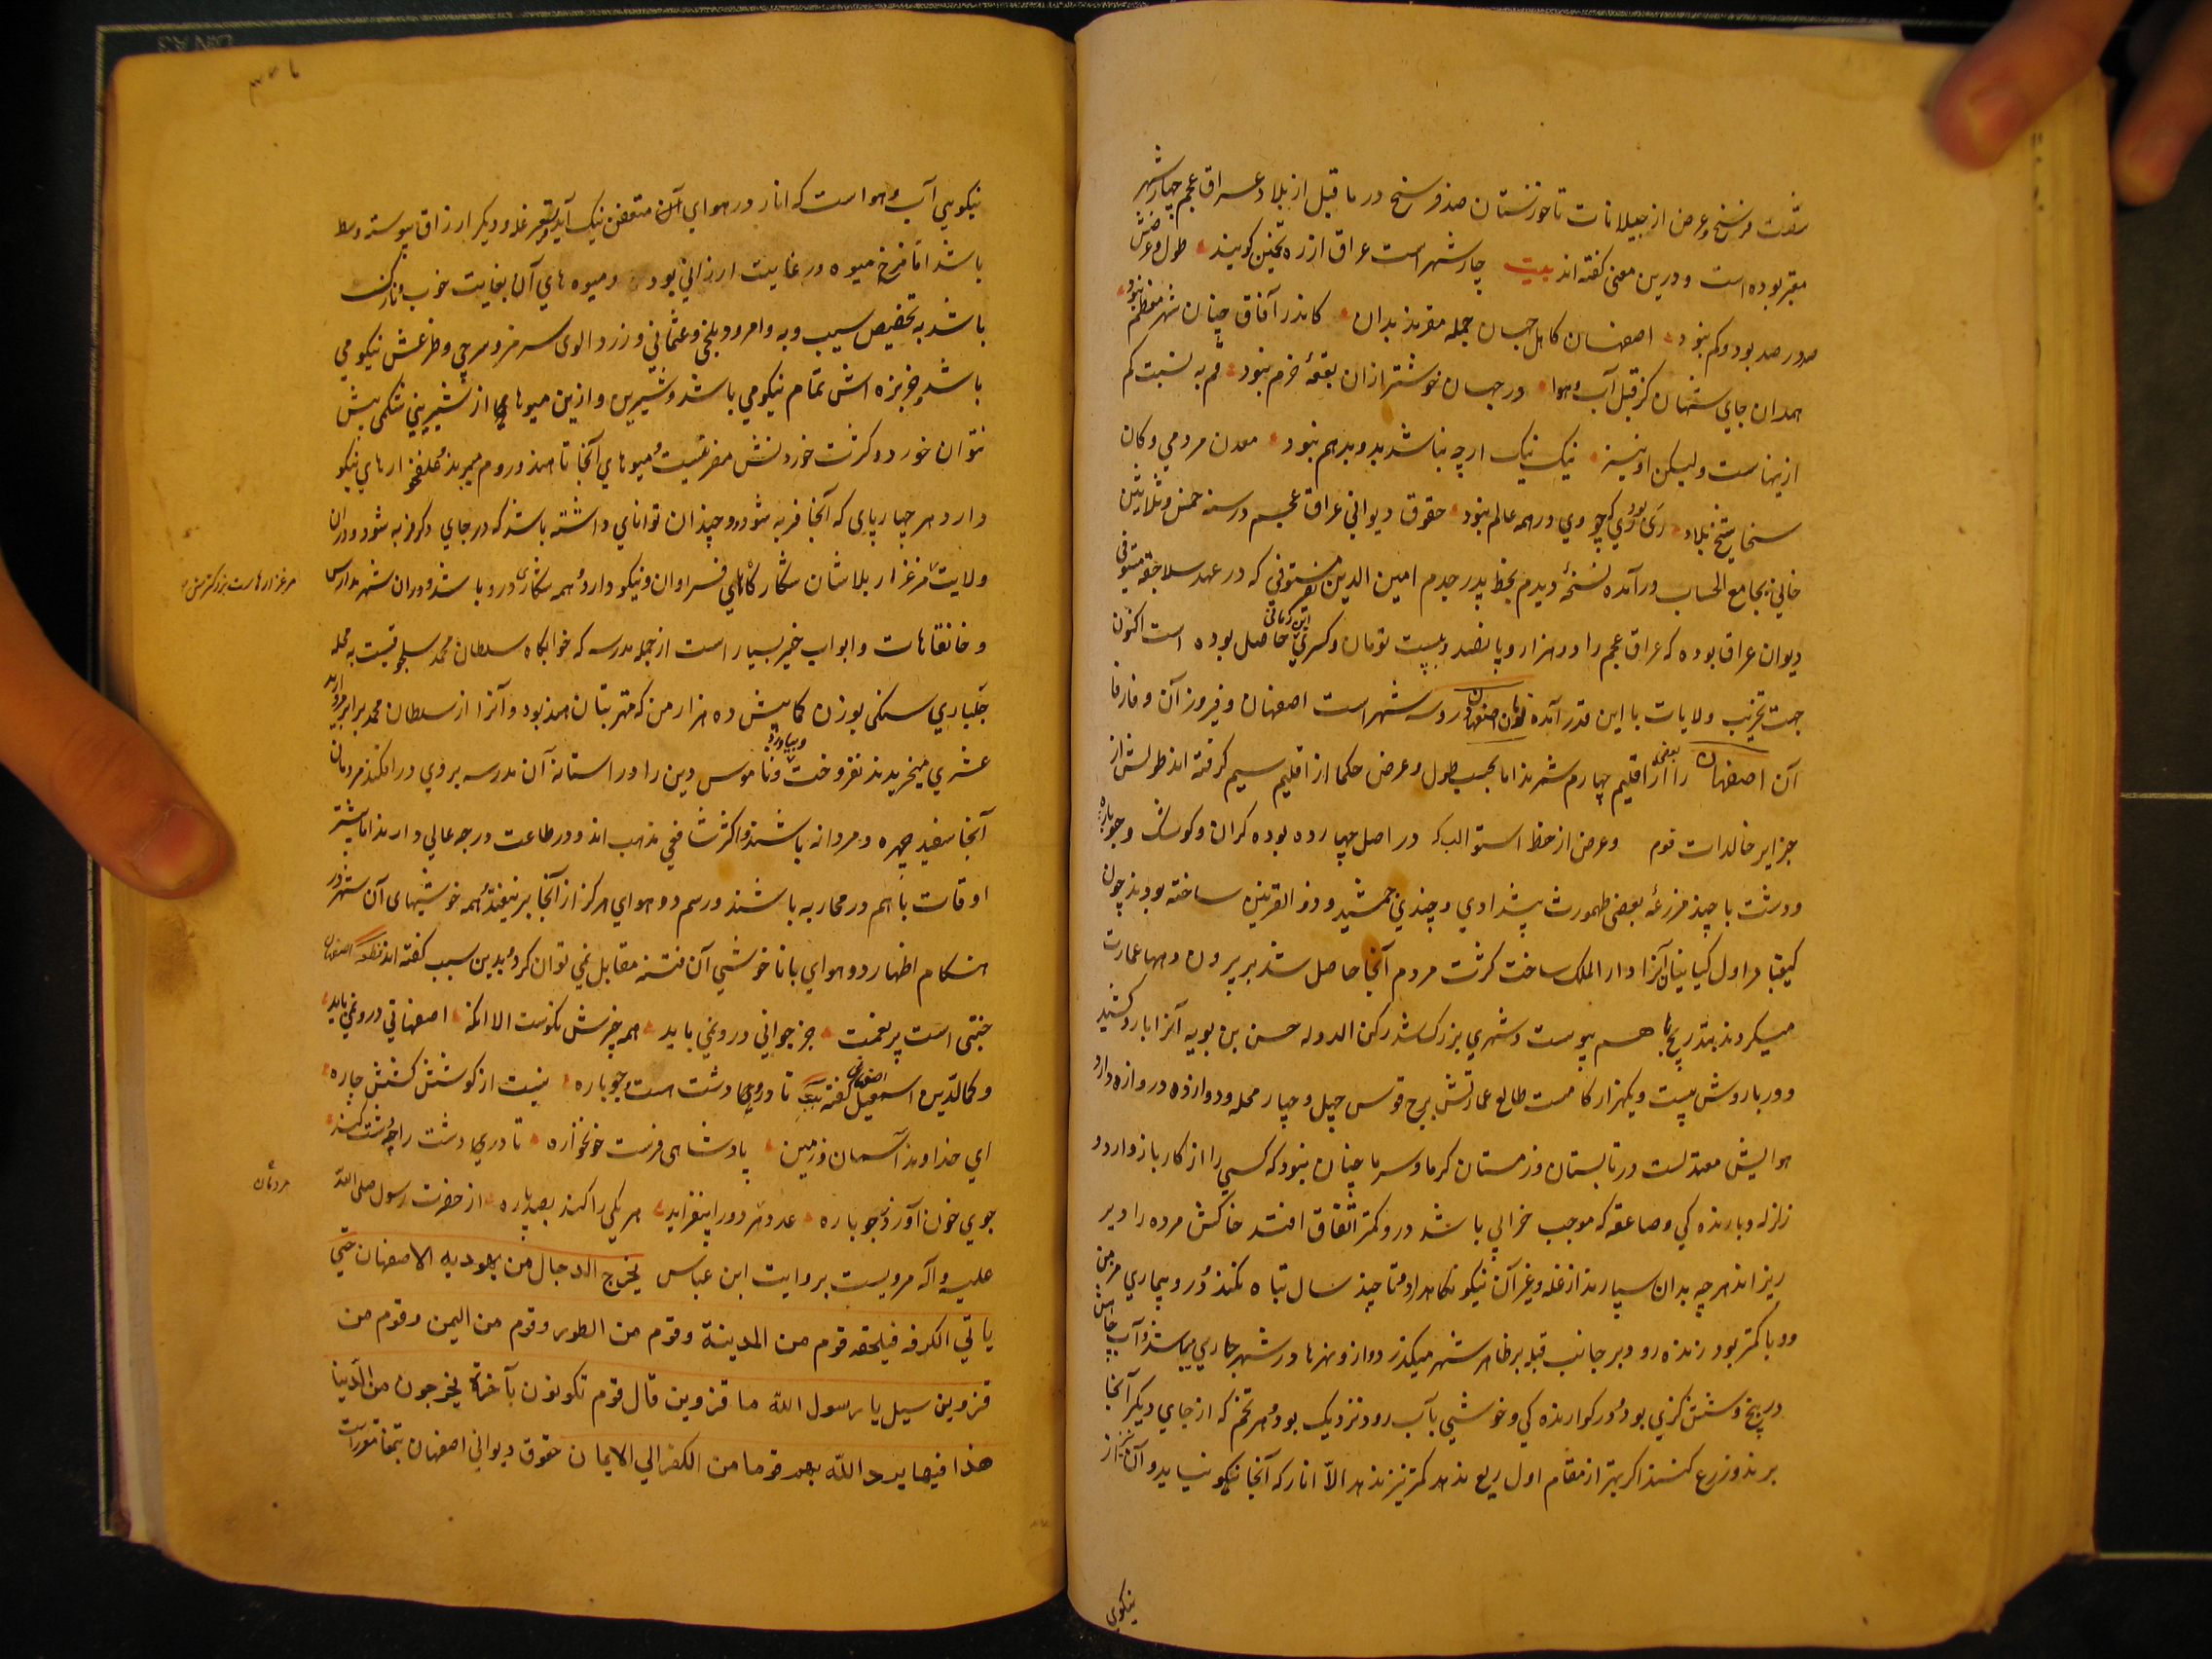 شصت فرسنخ و عرض از جیلانات تا خوزستان صد فرسخ در ما قبل از بلاد عراق عجم چهار شهر
معتبر بوده است و درین معنی گفته اند بیت چار شهر است عراق از ره تخمین گویند طول و عرضش
صد در صد بود و کم نبود اصفهان کاهل جهان جمله مقرند بدان کاندر آفاق چنان شهر معظم نبود
همدان جای شهان کز قبل آب و هوا در جهان خوشتر ازان بقعهٔ خرم نبود قم به نسبت کم
ازینهاست ولیکن او نیز نیک نیک ارچه نباشد بد و بد هم نبود معدن مردمی و کان
سخا شیخ بلاد ری بود ری که چو وی در همه عالم نبود حقوق دیوانی عراق عجم در سنه خمس و ثلاثین
خانی بجامع الحساب در آمده نسخهٔ دیدم بخط پدر جدم امین الدین نصر مستوفی که در عهد سلاجقه مستوفی
دیوان عراق بوده که عراق عجم را دو هزار و پانصد و بیست تومان و کسری این زمانی حاصل بوده است اکنون
جهت تخریب ولایات با این قدر آمده تومان اصفهان درو سه شهر است اصفهان و فیروزان و فارفا
آن اصفهان را بعضی از اقلیم چهارم شمرند اما بحسب طول و عرض حکما از اقلیم سیم گرفته اند طولش از
جزایر خالدات قوم وعرض از خط استوا لب که در اصل چهار ده بوده کران و کوشک و جوباره
و دشت با چند مزرعه بعضی طهمورث پیشدادی و چندی جمشید و ذو القرنین ساخته بودند چون
کیقباد اول کیانیان آنرا دار الملک ساخت کثرت مردم آنجا حاصل شد بر بیرون دهها عمارت
میکردند بتدریج با هم پیوست و شهری بزرک شد رکن الدوله حسن بن بویه آنرا بارو کشید
و دور باروش بیست و یکهزار کامست طالع عمارتش برج قوس چهل و چهار محله و دوازده دروازه دارد
هوایش معتدلست در تابستان و زمستان کرما و سرما چنان نبود که کسی را از کار باز دارد و
زلزله و بارندگی و صاعقه که موجب خرابی باشد درو کمتر اتفاق افتد خاکش مرده را دیر
ریزاند هر چه بدان سپارند از غله و غیر آن نیکو نگاه دارد و تا چند سال تباه نکند و درو بیماری مزمن
و وبا کمتر بود زنده رود بر جانب قبله بر ظاهر شهر میگذرد و ازو نهرها در شهر جاری میباشد و آب چاهش
در پنج و شش گزی بود و در گوارندگی و خوشی بآب رود نزدیک بود و هر تخم که از جای دیگر آنجا
برند و زرع کنند اگر بهتر از مقام اول ریع ندهد کمتر نیز ندهد الا انار که آنجا نیکو نیاید و آن نیز از
نیکوی
نیکویی آب و هواست که انار در هوای متعفن نیک آید و تسعیر غله و دیگر ارزاق پیوسته وسط
باشد اما نرخ میوه در غایت ارزانی بود و میوه های آن بغایت خوب و نازک
باشد به تخصیص سیب و به و امرود بلخی و عثمانی و زرد الوی سرمز و سرچی و طرغش نیکو می
باشد و خربزه اش تمام نیکو می باشد و شیرین و ازین میوها هیچ از شیرینی شکمی بیش
نتوان خورد و کثرت خوردنش مضر نیست و میوهای آنجا تا هند و روم میبرند و علفخوارهای نیکو
دارد هر چهارپای که آنجا فربه شود دو چندان توانای داشته باشد که در جای دگر فربه شود و دران
ولایت مرغزار بلاشان شکارگاهای فراوان و نیکو دارد و همه شکاری درو باشد و دران شهر مدارس
مرغزارهاست بزرکترینش
و خانقاهات و ابواب خیر بسیار است از جمله مدرسه که خوابگاه سلطان محمد سلجوقیست به محله
جلباری سنگی بوزن کمابیش ده هزار من که مهتر بتان هند بود و آنرا از سلطان محمد برابر مروارید
عشری میخریدند نفروخت و بیاورد و ناموس دین را در استانه آن مدرسه بروی در افکند مردمان
آنجا سفید چهره و مردانه باشند و اکثر شافعی مذهب اند و در طاعت درجه عالی دارند اما بیشتر
اوقات با هم در محاربه باشند و رسم دو هوای هرگز از آنجا بر نیفتد و همه خوشیهای آن شهر در
هنگام اظهار دو هوای با ناخوشی آن فتنه مقابل نمی توان کرد و بدین سبب گفته اند قطعه اصفهان
جنتی است پر نعمت جز جوانی درو نمی باید همه چیزش نکوست الا آنکه اصفهانی درو نمی باید
و کمال الدین اسمعیل اصفهانی گفته بیت تا در دشت هست و جوباره نیست از کوشش کشش چاره
ای خداوند آسمان و زمین پادشاهی فرست خونخواره تا در دشت را چو دشت کند
جوی خون آورد ز جوباره عدد هر دو را بیفزاید هر یکی را کند بصد پاره از حضرت رسول صلی الله
مردمان
علیه وآله مرویست بروایت ابن عباس یخرج الدجال من یهودیه الاصفهان حتی
یاتی الکوفه فیلحقه قوم من المدینة وقوم من الطور وقوم من الیمن وقوم من
قزوین سیل یا رسول الله ما قزوین قال قوم تکونون بآخرة یخرجون من الدنیا
هذا فیها یرد الله بهم قوما من الکفر الی الایمان حقوق دیوانی اصفهان بتمغا مقررست